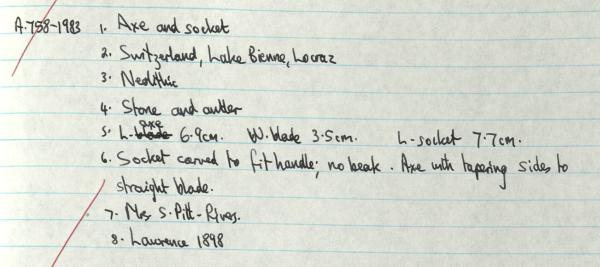 A.758-1983 1. Axe and socket
2. Switzerland, Lake Bienne, Locraz
3. Neolithic
4. Stone and antler
5. L-axe 6.9cm. W. blade 3.5cm. L-socket 7.7cm.
6. Socket carved to fit handle; no beak. Axe with tapering sides to
straight blade.
7. Mrs S. Pitt-Rivers.
8. Lawrence 1898